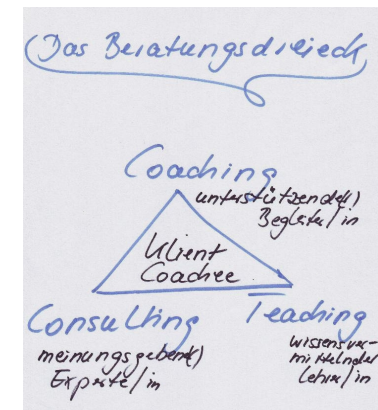 Das Beratungsdreieck
Coaching
unterstützende(r)
Begleiter/in
Klient
Coachee
Consulting
meinungsgebende(r)
Experte/in
Teaching
wissensver-
mittelnder
Lehrer/in